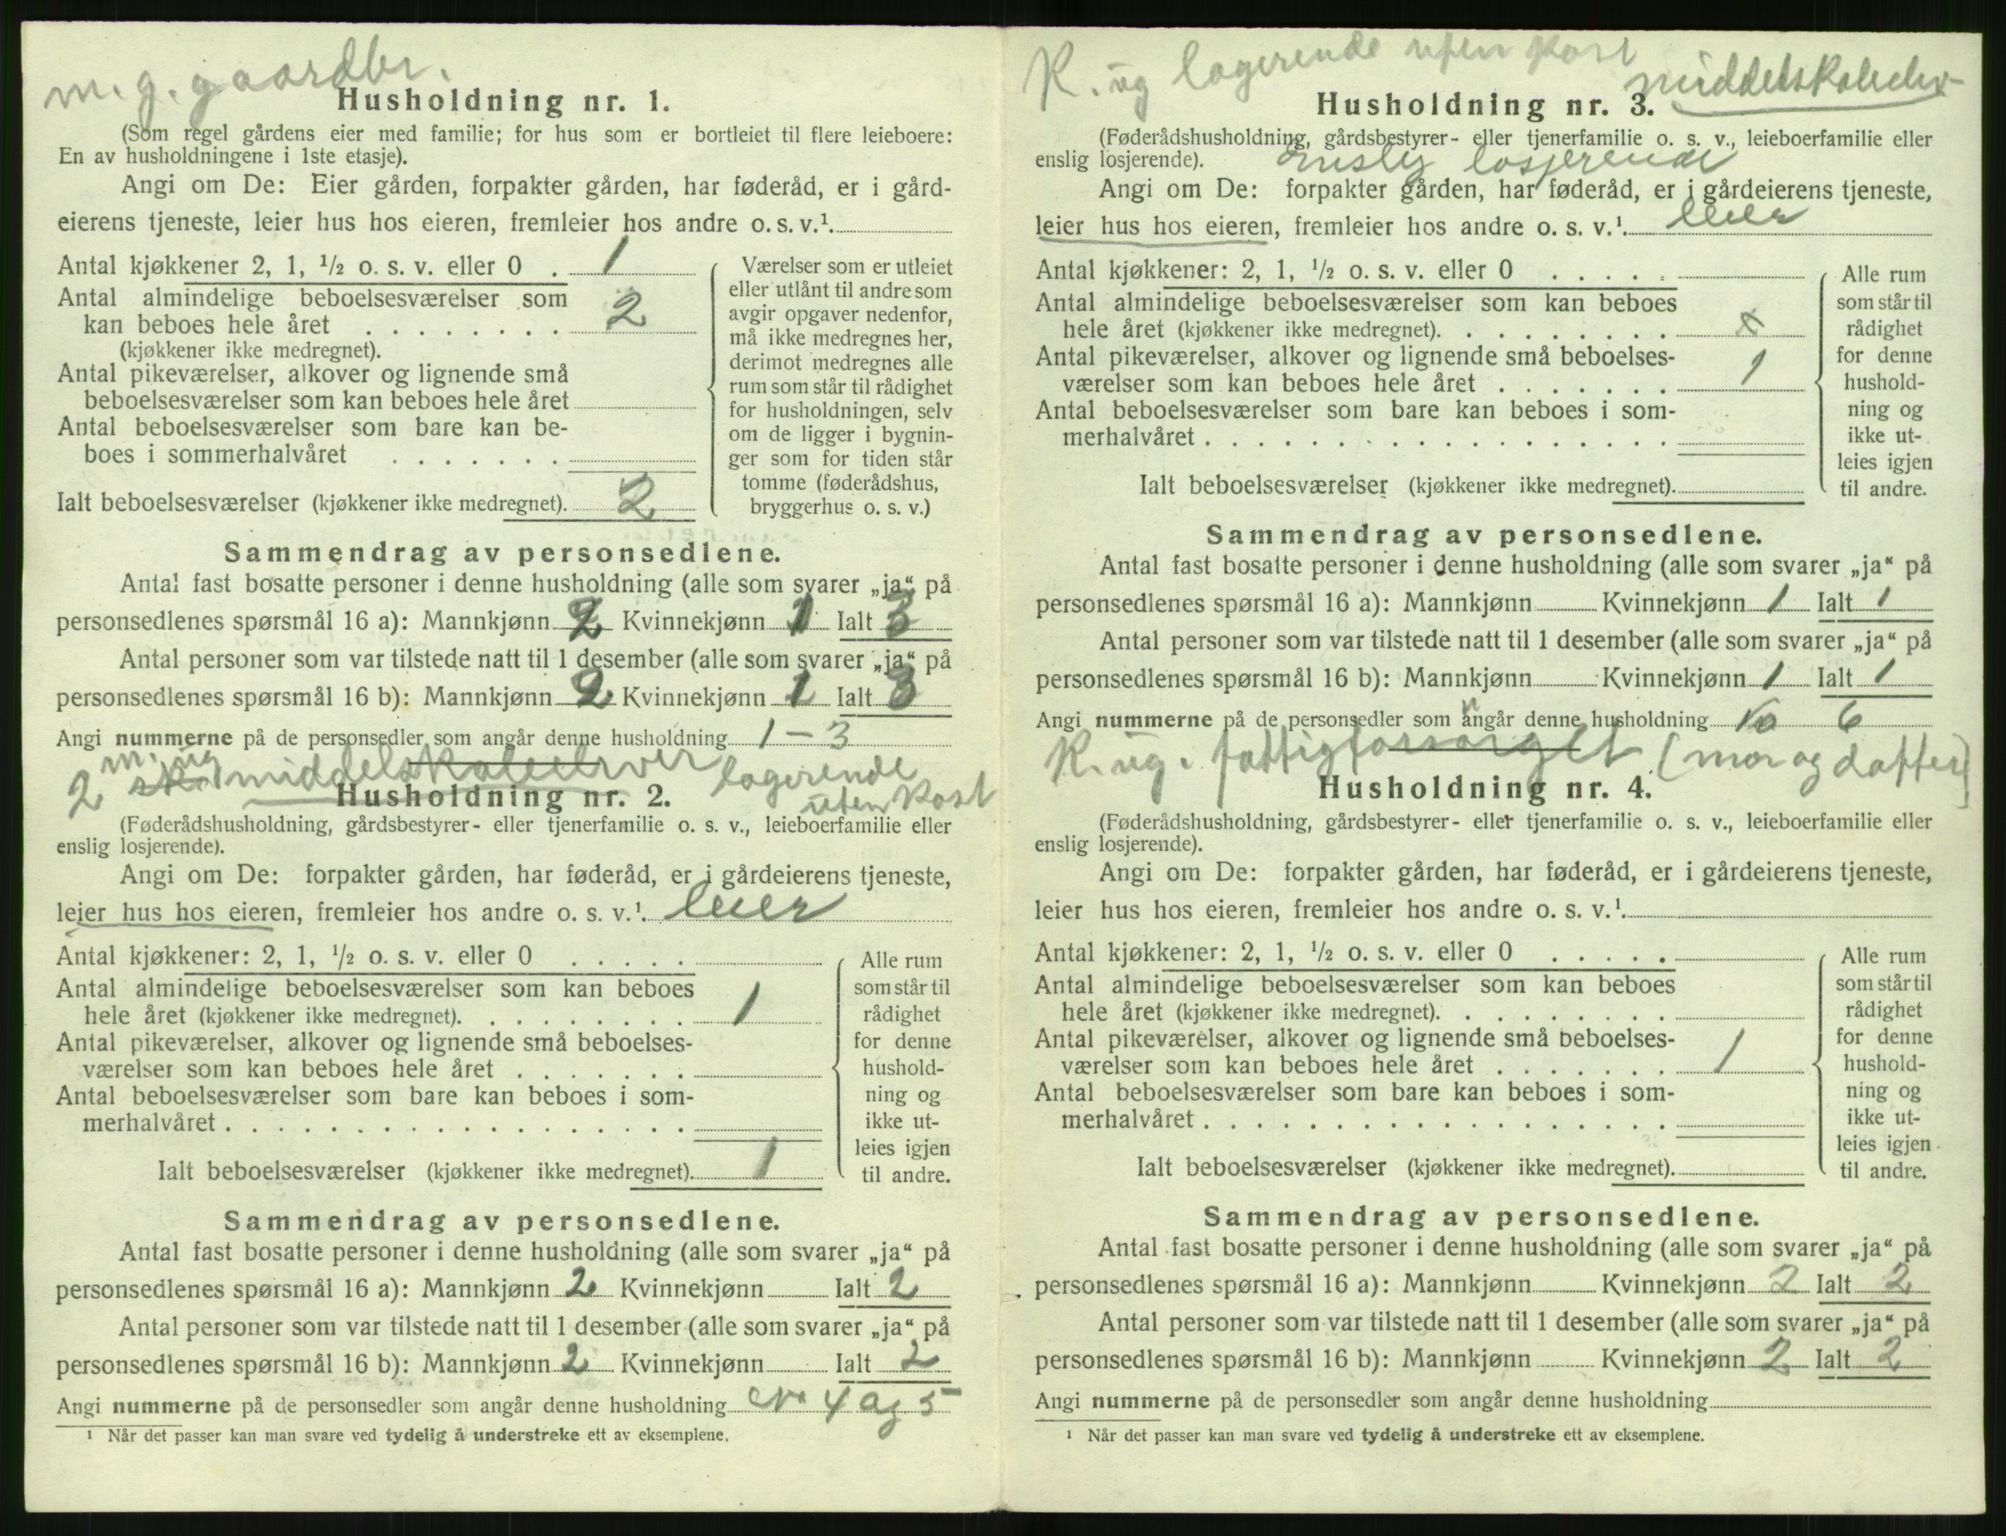 m. g. gaardbr.
Husholdning nr. 1.
(Som regel gårdens eier med familie; for hus som er bortleiet til flere leieboere:
En av husholdningene i 1ste etasje).
Angi om De: Eier gården, forpakter gården, har føderåd, er i gård-
eierens tjeneste, leier hus hos eieren, fremleier hos andre o. s. v.¹.
Antal kjøkkener 2, 1, ½ o. s. v. eller 0 . 1
Antal almindelige beboelsesværelser som
kan beboes hele året . . . . . . . . 2
(kjøkkener ikke medregnet).
Antal pikeværelser, alkover og lignende små
beboelsesværelser som kan beboes hele året
Antal beboelsesværelser som bare kan be-
boes i sommerhalvåret . . . . . . .
Ialt beboelsesværelser (kjøkkener ikke medregnet). 2
Værelser som er utleiet
eller utlånt til andre som
avgir opgaver nedenfor,
må ikke medregnes her,
derimot medregnes alle
rum som står til rådighet
for husholdningen, selv
om de ligger i bygnin-
ger som for tiden står
tomme (føderådshus,
bryggerhus o. s. v.)
Sammendrag av personsedlene.
Antal fast bosatte personer i denne husholdning (alle som svarer „ja“ på
personsedlenes spørsmål 16 a): Mannkjønn 2 Kvinnekjønn 1 Ialt 3
Antal personer som var tilstede natt til 1 desember (alle som svarer „ja“ på
personsedlenes spørsmål 16 b): Mannkjønn 2 Kvinnekjønn 1 Ialt 3
Angi nummerne på de personsedler som angår denne husholdning 1 - 3
2 m. ug middelskoleelever logerende
uten kost
Husholdning nr. 2.
(Føderådshusholdning, gårdsbestyrer- eller tjenerfamilie o. s. v., leieboerfamilie eller
enslig losjerende).
Angi om De: forpakter gården, har føderåd, er i gårdeierens tjeneste,
leier hus hos eieren, fremleier hos andre o. s. v.¹. leier
Antal kjøkkener: 2, 1, ½ o. s. v. eller 0 . . . . .
Antal almindelige beboelsesværelser som kan beboes
hele året (kjøkkener ikke medregnet). . . . . . . . . 1
Antal pikeværelser, alkover og lignende små beboelses-
værelser som kan beboes hele året . . . . . . .
Antal beboelsesværelser som bare kan beboes i som-
merhalvåret . . . . . . . . . . . . . . . . . .
Ialt beboelsesværelser (kjøkkener ikke medregnet). 1
Alle rum
som står til
rådighet
for denne
hushold-
ning og
ikke ut-
leies igjen
til andre.
Sammendrag av personsedlene.
Antal fast bosatte personer i denne husholdning (alle som svarer „ja“ på
personsedlenes spørsmål 16 a): Mannkjønn 2 Kvinnekjønn Ialt 2
Antal personer som var tilstede natt til 1 desember (alle som svarer „ja“ på
personsedlenes spørsmål 16 b): Mannkjønn 2 Kvinnekjønn Ialt 2
Angi nummerne på de personsedler som angår denne husholdning Nr 4 og 5
¹ Når det passer kan man svare ved tydelig å understreke ett av eksemplene.
K. ug logerende uten kost
middelskoleelev
Husholdning nr. 3.
(Føderådshusholdning, gårdsbestyrer- eller tjenerfamilie o. s. v., leieboerfamilie eller
enslig losjerende). enslig losjerende
Angi om De: forpakter gården, har føderåd, er i gårdeierens tjeneste,
leier hus hos eieren, fremleier hos andre o. s. v.¹. leier
Antal kjøkkener: 2, 1, ½ o. s. v. eller 0 . . . . .
Antal almindelige beboelsesværelser som kan beboes
hele året (kjøkkener ikke medregnet). . . . . . . . . x
Antal pikeværelser, alkover og lignende små beboelses-
værelser som kan beboes hele året . . . . . . . 1
Antal beboelsesværelser som bare kan beboes i som-
merhalvåret . . . . . . . . . . . . . . . . . .
Ialt beboelsesværelser (kjøkkener ikke medregnet).
Alle rum
som står til
rådighet
for denne
hushold-
ning og
ikke ut-
leies igjen
til andre.
Sammendrag av personsedlene.
Antal fast bosatte personer i denne husholdning (alle som svarer „ja“ på
personsedlenes spørsmål 16 a): Mannkjønn Kvinnekjønn 1 Ialt 1
Antal personer som var tilstede natt til 1 desember (alle som svarer „ja“ på
personsedlenes spørsmål 16 b): Mannkjønn Kvinnekjønn 1 Ialt 1
Angi nummerne på de personsedler som angår denne husholdning No 6
K. ug. fattigforsørget (mor og datter)
Husholdning nr. 4.
(Føderådshusholdning, gårdsbestyrer- eller tjenerfamilie o. s. v., leieboerfamilie eller
enslig losjerende).
Angi om De: forpakter gården, har føderåd, er i gårdeierens tjeneste,
leier hus hos eieren, fremleier hos andre o. s. v.¹.
Antal kjøkkener: 2, 1, ½ o. s. v. eller 0 . . . . .
Antal almindelige beboelsesværelser som kan beboes
hele året (kjøkkener ikke medregnet). . . . . . . . .
Antal pikeværelser, alkover og lignende små beboelses-
værelser som kan beboes hele året . . . . . . . 1
Antal beboelsesværelser som bare kan beboes i som-
merhalvåret . . . . . . . . . . . . . . . . . .
Ialt beboelsesværelser (kjøkkener ikke medregnet).
Alle rum
som står til
rådighet
for denne
hushold-
ning og
ikke ut-
leies igjen
til andre.
Sammendrag av personsedlene.
Antal fast bosatte personer i denne husholdning (alle som svarer „ja“ på
personsedlenes spørsmål 16 a): Mannkjønn Kvinnekjønn 2 Ialt 2
Antal personer som var tilstede natt til 1 desember (alle som svarer „ja“ på
personsedlenes spørsmål 16 b): Mannkjønn Kvinnekjønn 2 Ialt 2
Angi nummerne på de personsedler som angår denne husholdning
¹ Når det passer kan man svare ved tydelig å understreke ett av eksemplene.